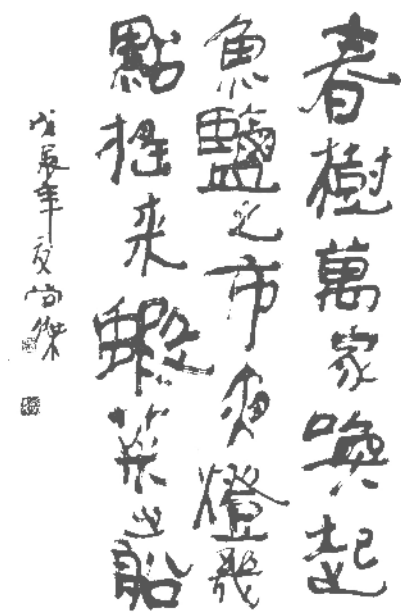 春樹萬家喚起
魚鹽之市夜燈幾
點搖来蝦菜之船
戊辰年夏尚傑